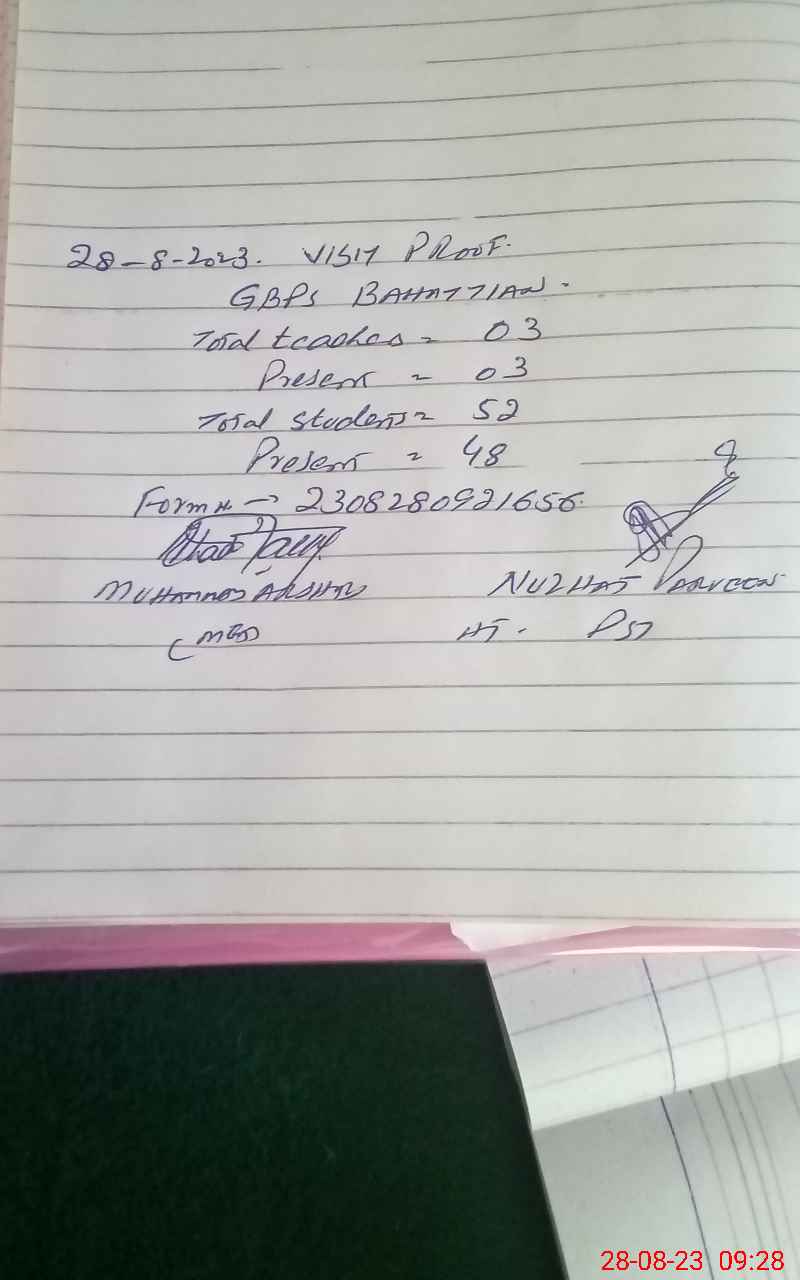 28-8-2023. VISIT PROOF.
GBPS BAHATTIAN.
Total teaches = 03
Present = 03
Total students = 52
Present = 48
Form # → 2308280921656.
MUHAMMAD ARSHAD NUZHAT PARVEEN
HT. PST
28-08-23 09:28